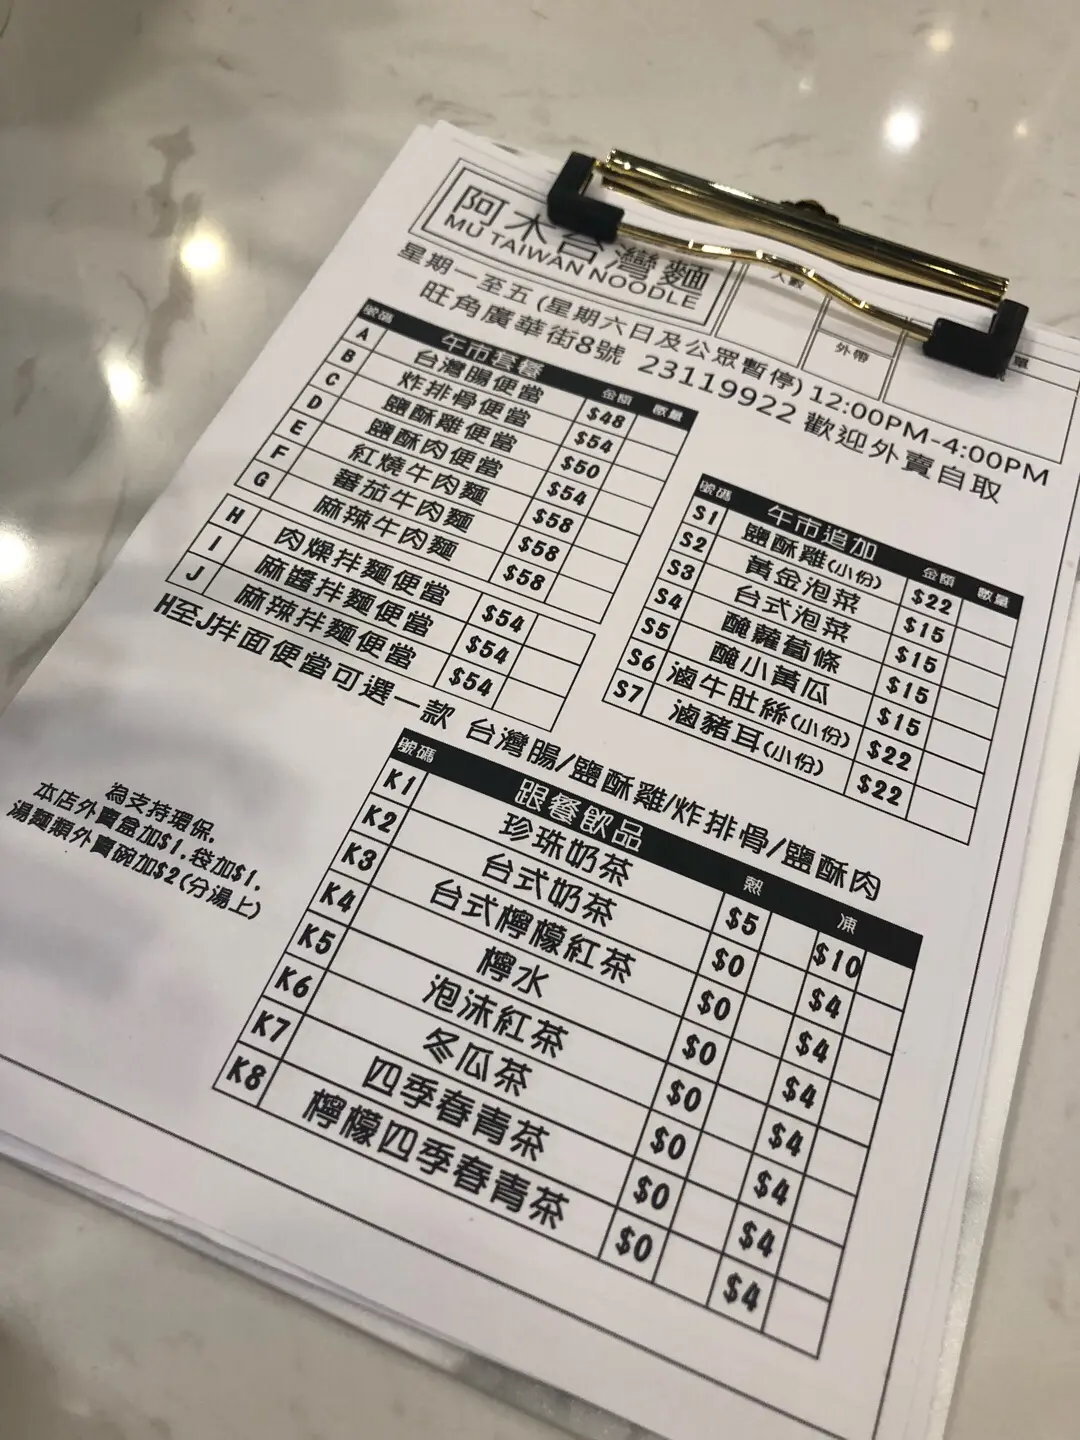 阿木台灣麵
MU TAIWAN NOODLE
人數
外帶
單
星期一至五 (星期六日及公眾暫停) 12:00PM-4:00PM
旺角廣華街8號 23119922 歡迎外賣自取
號碼 午市套餐 金額 數量
A 台灣腸便當 $48
B 炸排骨便當 $54
C 鹽酥雞便當 $50
D 鹽酥肉便當 $54
E 紅燒牛肉麵 $58
F 蕃茄牛肉麵 $58
G 麻辣牛肉麵 $58
H 肉燥拌麵便當 $54
I 麻醬拌麵便當 $54
J 麻辣拌麵便當 $54
H至J拌面便當可選一款 台灣腸/鹽酥雞/炸排骨/鹽酥肉
號碼 午市追加 金額 數量
S1 鹽酥雞(小份) $22
S2 黃金泡菜 $15
S3 台式泡菜 $15
S4 醃蘿蔔條 $15
S5 醃小黃瓜 $15
S6 滷牛肚絲(小份) $22
S7 滷豬耳(小份) $22
為支持環保,
本店外賣盒加$1,袋加$1,
湯麵類外賣碗加$2(分湯上)
號碼 跟餐飲品 熱 凍
K1 珍珠奶茶 $5 $10
K2 台式奶茶 $0 $4
K3 台式檸檬紅茶 $0 $4
K4 檸水 $0 $4
K5 泡沫紅茶 $0 $4
K6 冬瓜茶 $0 $4
K7 四季春青茶 $0 $4
K8 檸檬四季春青茶 $0 $4